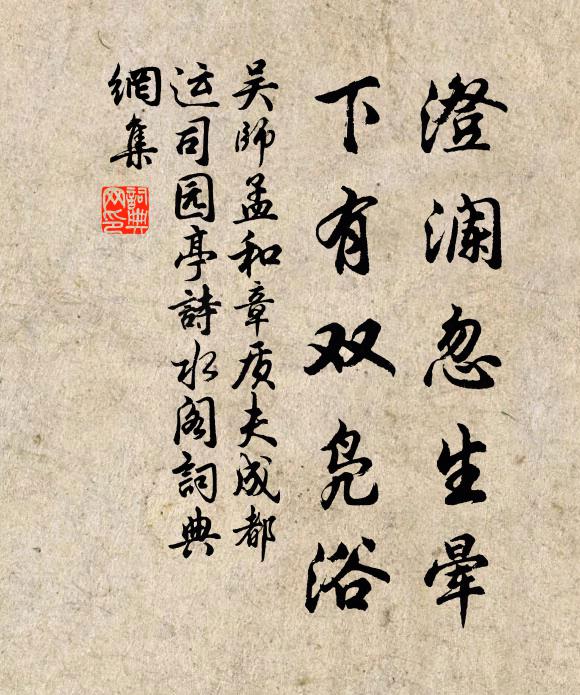 澄澜忽生暈
下有双凫浴
吴師孟和章质夫成都
运司园亭詩水阁詞典
網集
詞典網印